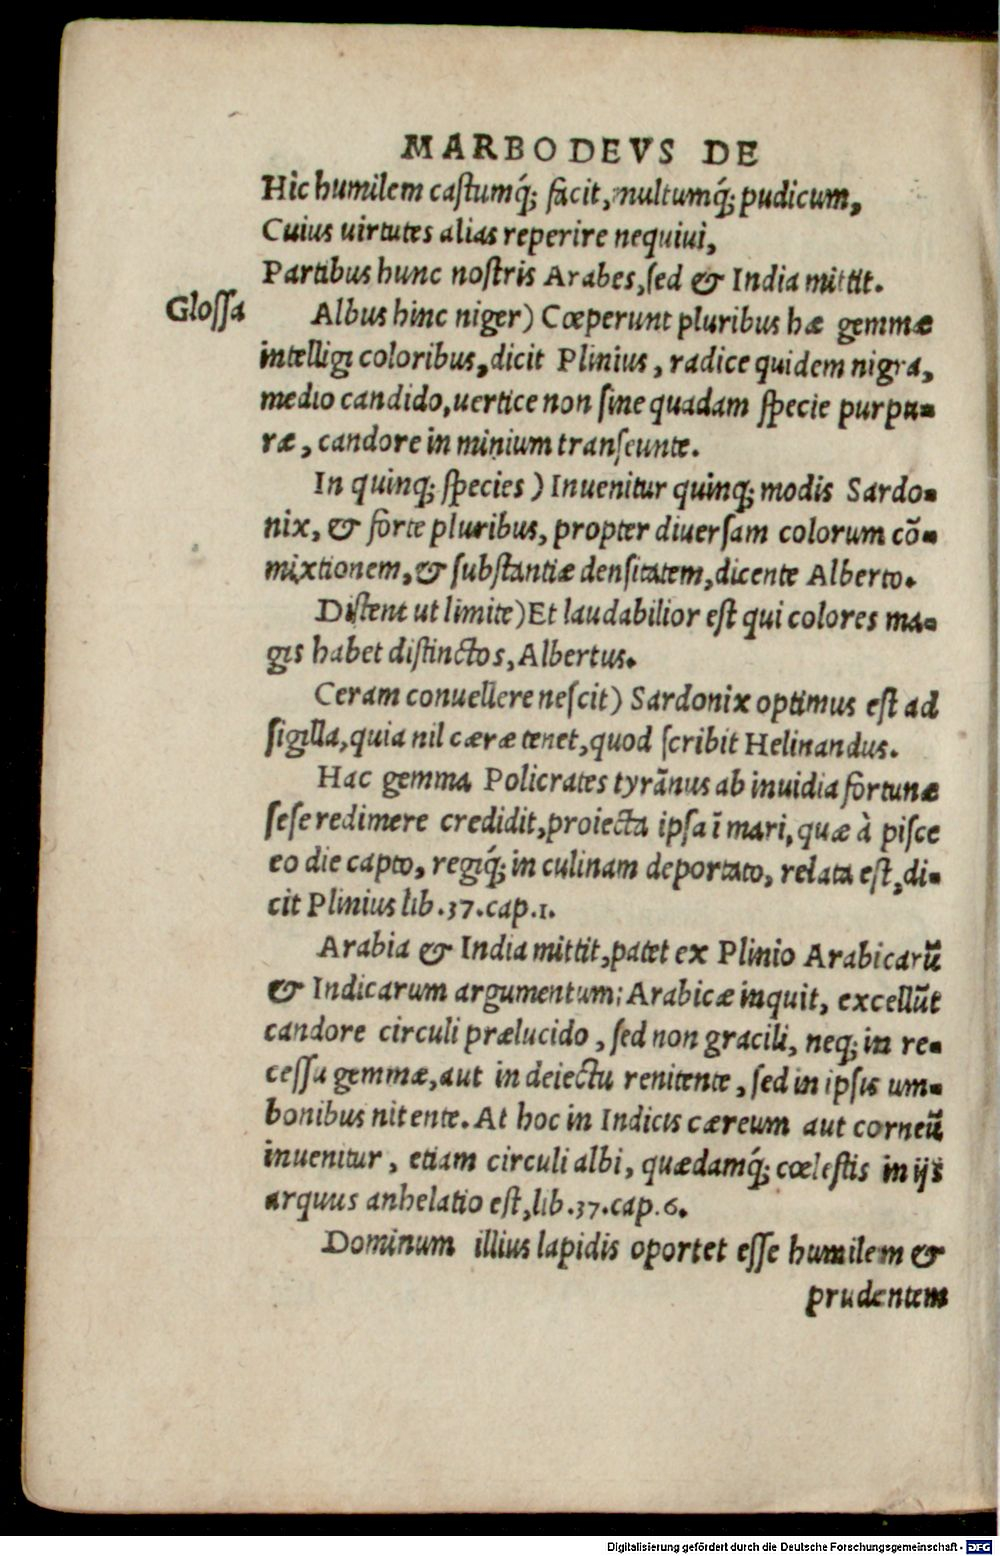 MARBODEVS DE
Hic humilem castumq́; facit, multumq́; pudicum,
Cuius uirtutes alias reperire nequiui,
Partibus hunc nostris Arabes, sed & India mittit.
Glossa
Albus hinc niger) Cœperunt pluribus hæ gemmæ
intelligi coloribus, dicit Plinius, radice quidem nigra,
medio candido, uertice non sine quadam specie purpu-
ræ, candore in minium transeunte.
In quinq; species) Inuenitur quinq; modis Sardo-
nix, & forte pluribus, propter diuersam colorum cō-
mixtionem, & substantiæ densitatem, dicente Alberto.
Distent ut limite) Et laudabilior est qui colores ma-
gis habet distinctos, Albertus.
Ceram conuellere nescit) Sardonix optimus est ad
sigilla, quia nil cæræ tenet, quod scribit Helinandus.
Hac gemma Policrates tyrānus ab inuidia fortunæ
sese redimere credidit, proiecta ipsa ī mari, quæ à pisce
eo die capto, regiq́; in culinam deportato, relata est, di-
cit Plinius lib. 37. cap. 1.
Arabia & India mittit, patet ex Plinio Arabicarū
& Indicarum argumentum; Arabicæ inquit, excellūt
candore circuli prælucido, sed non gracili, neq; in re-
cessu gemmæ, aut in deiectu renitente, sed in ipsis um-
bonibus nitente. At hoc in Indicis cæreum aut corneū
inuenitur, etiam circuli albi, quædamq́; cœlestis in ijs
arquus anhelatio est, lib. 37. cap. 6.
Dominum illius lapidis oportet esse humilem &
prudentem
Digitalisierung gefördert durch die Deutsche Forschungsgemeinschaft - DFG